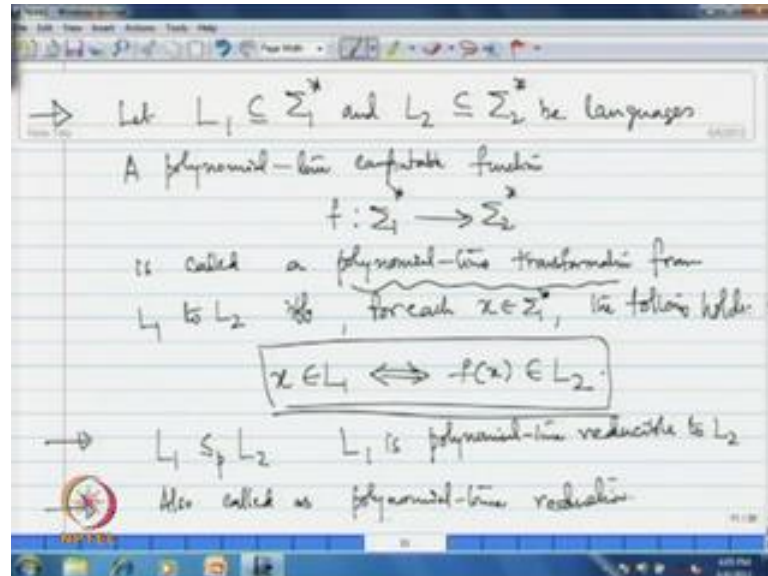 → Let L₁ ⊆ Σ₁* and L₂ ⊆ Σ₂* be languages
A polynomial-time computable function
f : Σ₁* → Σ₂*
is called a polynomial-time transformation from
L₁ to L₂ iff, for each x ∈ Σ₁*, the following holds.
x ∈ L₁ ⟺ f(x) ∈ L₂.
→ L₁ ≤ₚ L₂ L₁ is polynomial-time reducible to L₂
→ Also called as polynomial-time reduction.
NPTEL